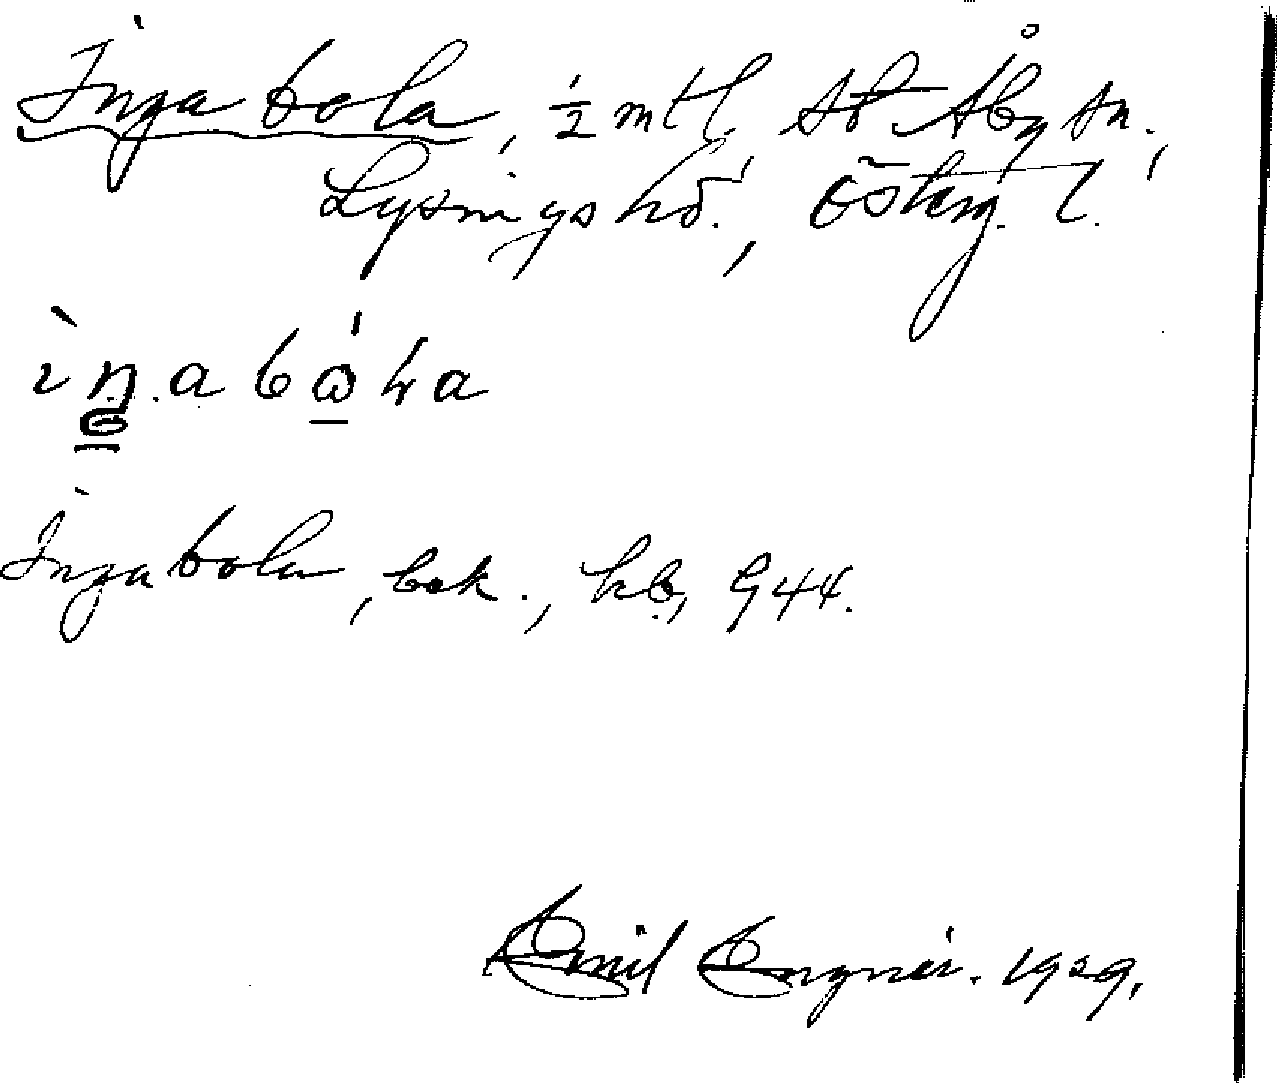 Ingabola, ½ mtl, St. Åby sn.,
Lysings hd., Österg. l.
Ingabola, bok., kb, 944.
Emil Engnér. 1929.